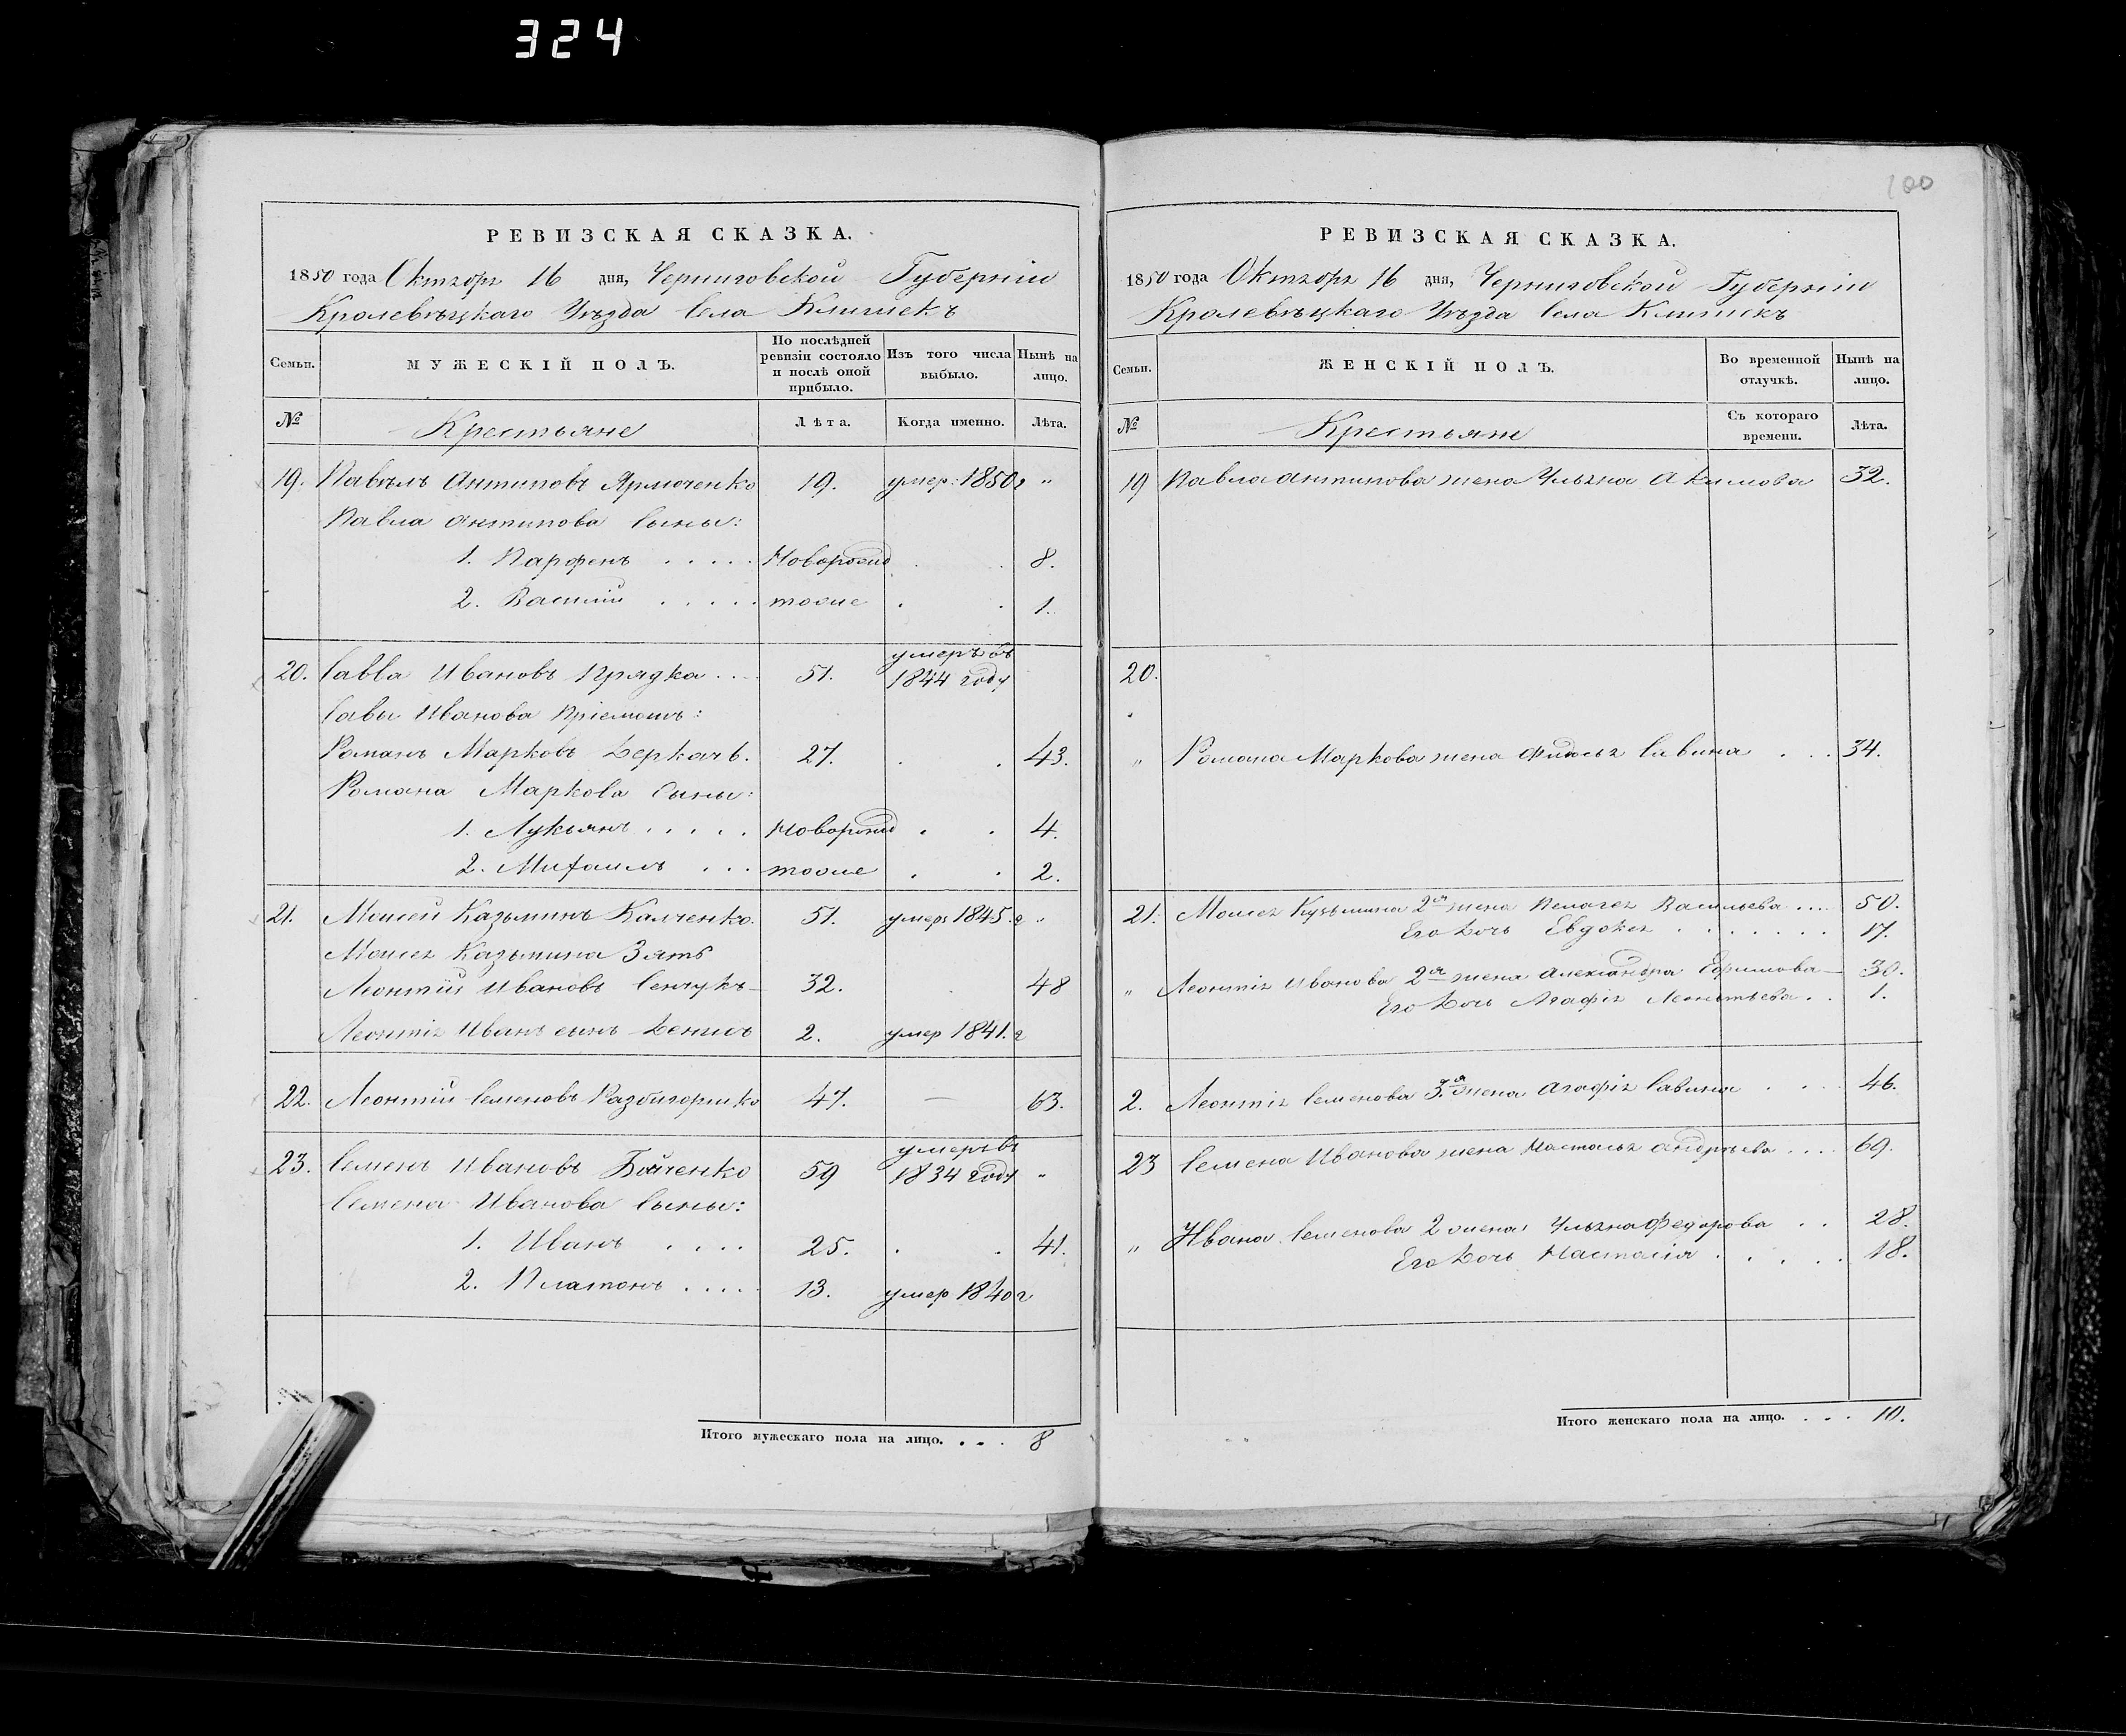 324
100
РЕВИЗСКАЯ СКАЗКА.
1850 года Октября 16 дня, Черниговской Губерніи
Кролевѣцкаго Уѣзда Села Клишекъ
Семьи. МУЖЕСКІЙ ПОЛЪ. По послѣдней ревизіи состояло и послѣ оной прибыло. Изъ того числа выбыло. Нынѣ на лицо.
№ Крестьяне Лѣта. Когда именно. Лѣта.
19. Павелъ Антиповъ Ярмоченко 19. умер: 1850 г „
Павла Антипова Сыны:
1. Парфенъ . . . . . Новорожд . . 8.
2. Василій . . . . . тоже . . 1.
20. Савва Ивановъ Прядка . . . 51. умеръ въ 1844 году
Савы Иванова Пріемышъ:
Романъ Марковъ Деркачъ. 27. . . 43.
Романа Маркова Сыны:
1. Лукьянъ . . . . . Новорожд . . 4.
2. Михаилъ . . . тоже . . 2.
21. Моисей Казьминъ Калченко. 51. умеръ 1845. г „
Моисея Казьмина Зять
Леонтій Ивановъ Сенчукъ 32. . 48
Леонтія Иван: сынъ Денисъ 2. умер 1841. г
22. Леонтій Семеновъ Разбигоршко 47. — 63.
23. Семенъ Ивановъ Бойченко 59 умеръ въ 1834 году „
Семена Иванова Сыны:
1. Иванъ . . . . 25. . . 41.
2. Платонъ . . . . 13. умер 1840 г
Итого мужескаго пола на лицо. . . . 8
РЕВИЗСКАЯ СКАЗКА.
1850 года Октября 16 дня, Черниговской Губерніи
Кролевѣцкаго Уѣзда Села Клишекъ
Семьи. ЖЕНСКІЙ ПОЛЪ. Во временной отлучкѣ. Нынѣ на лицо.
№ Крестьяне Съ котораго времени. Лѣта.
19 Павла Антипова жена Ульяна Акимова 32.
20.
„ Романа Маркова жена Савина . . . 34.
21. Моисея Кузьмина 2я жена Пелагея Васильева . . . . 50.
Его Дочь Евдокея . . . . . . . 17.
„ Леонтія Иванова 2я жена Александра Ефимова 30.
Его Дочь Агафія Леонтьева . . 1.
2. Леонтія Семенова 3я жена Агафія Савина . . . . 46.
23 Семена Иванова жена Настасья Андреева . . . . 69.
„ Ивана Семенова 2 жена Ульяна Федорова . . 28.
Его Дочь Настасія . . . . . 18.
Итого женскаго пола на лицо. . . . 10.